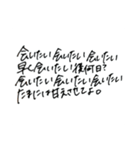 会いたい会いたい会いたい
早く会いたい後何日?
会いたい会いたい会いたい
たまには甘えさせてよ。